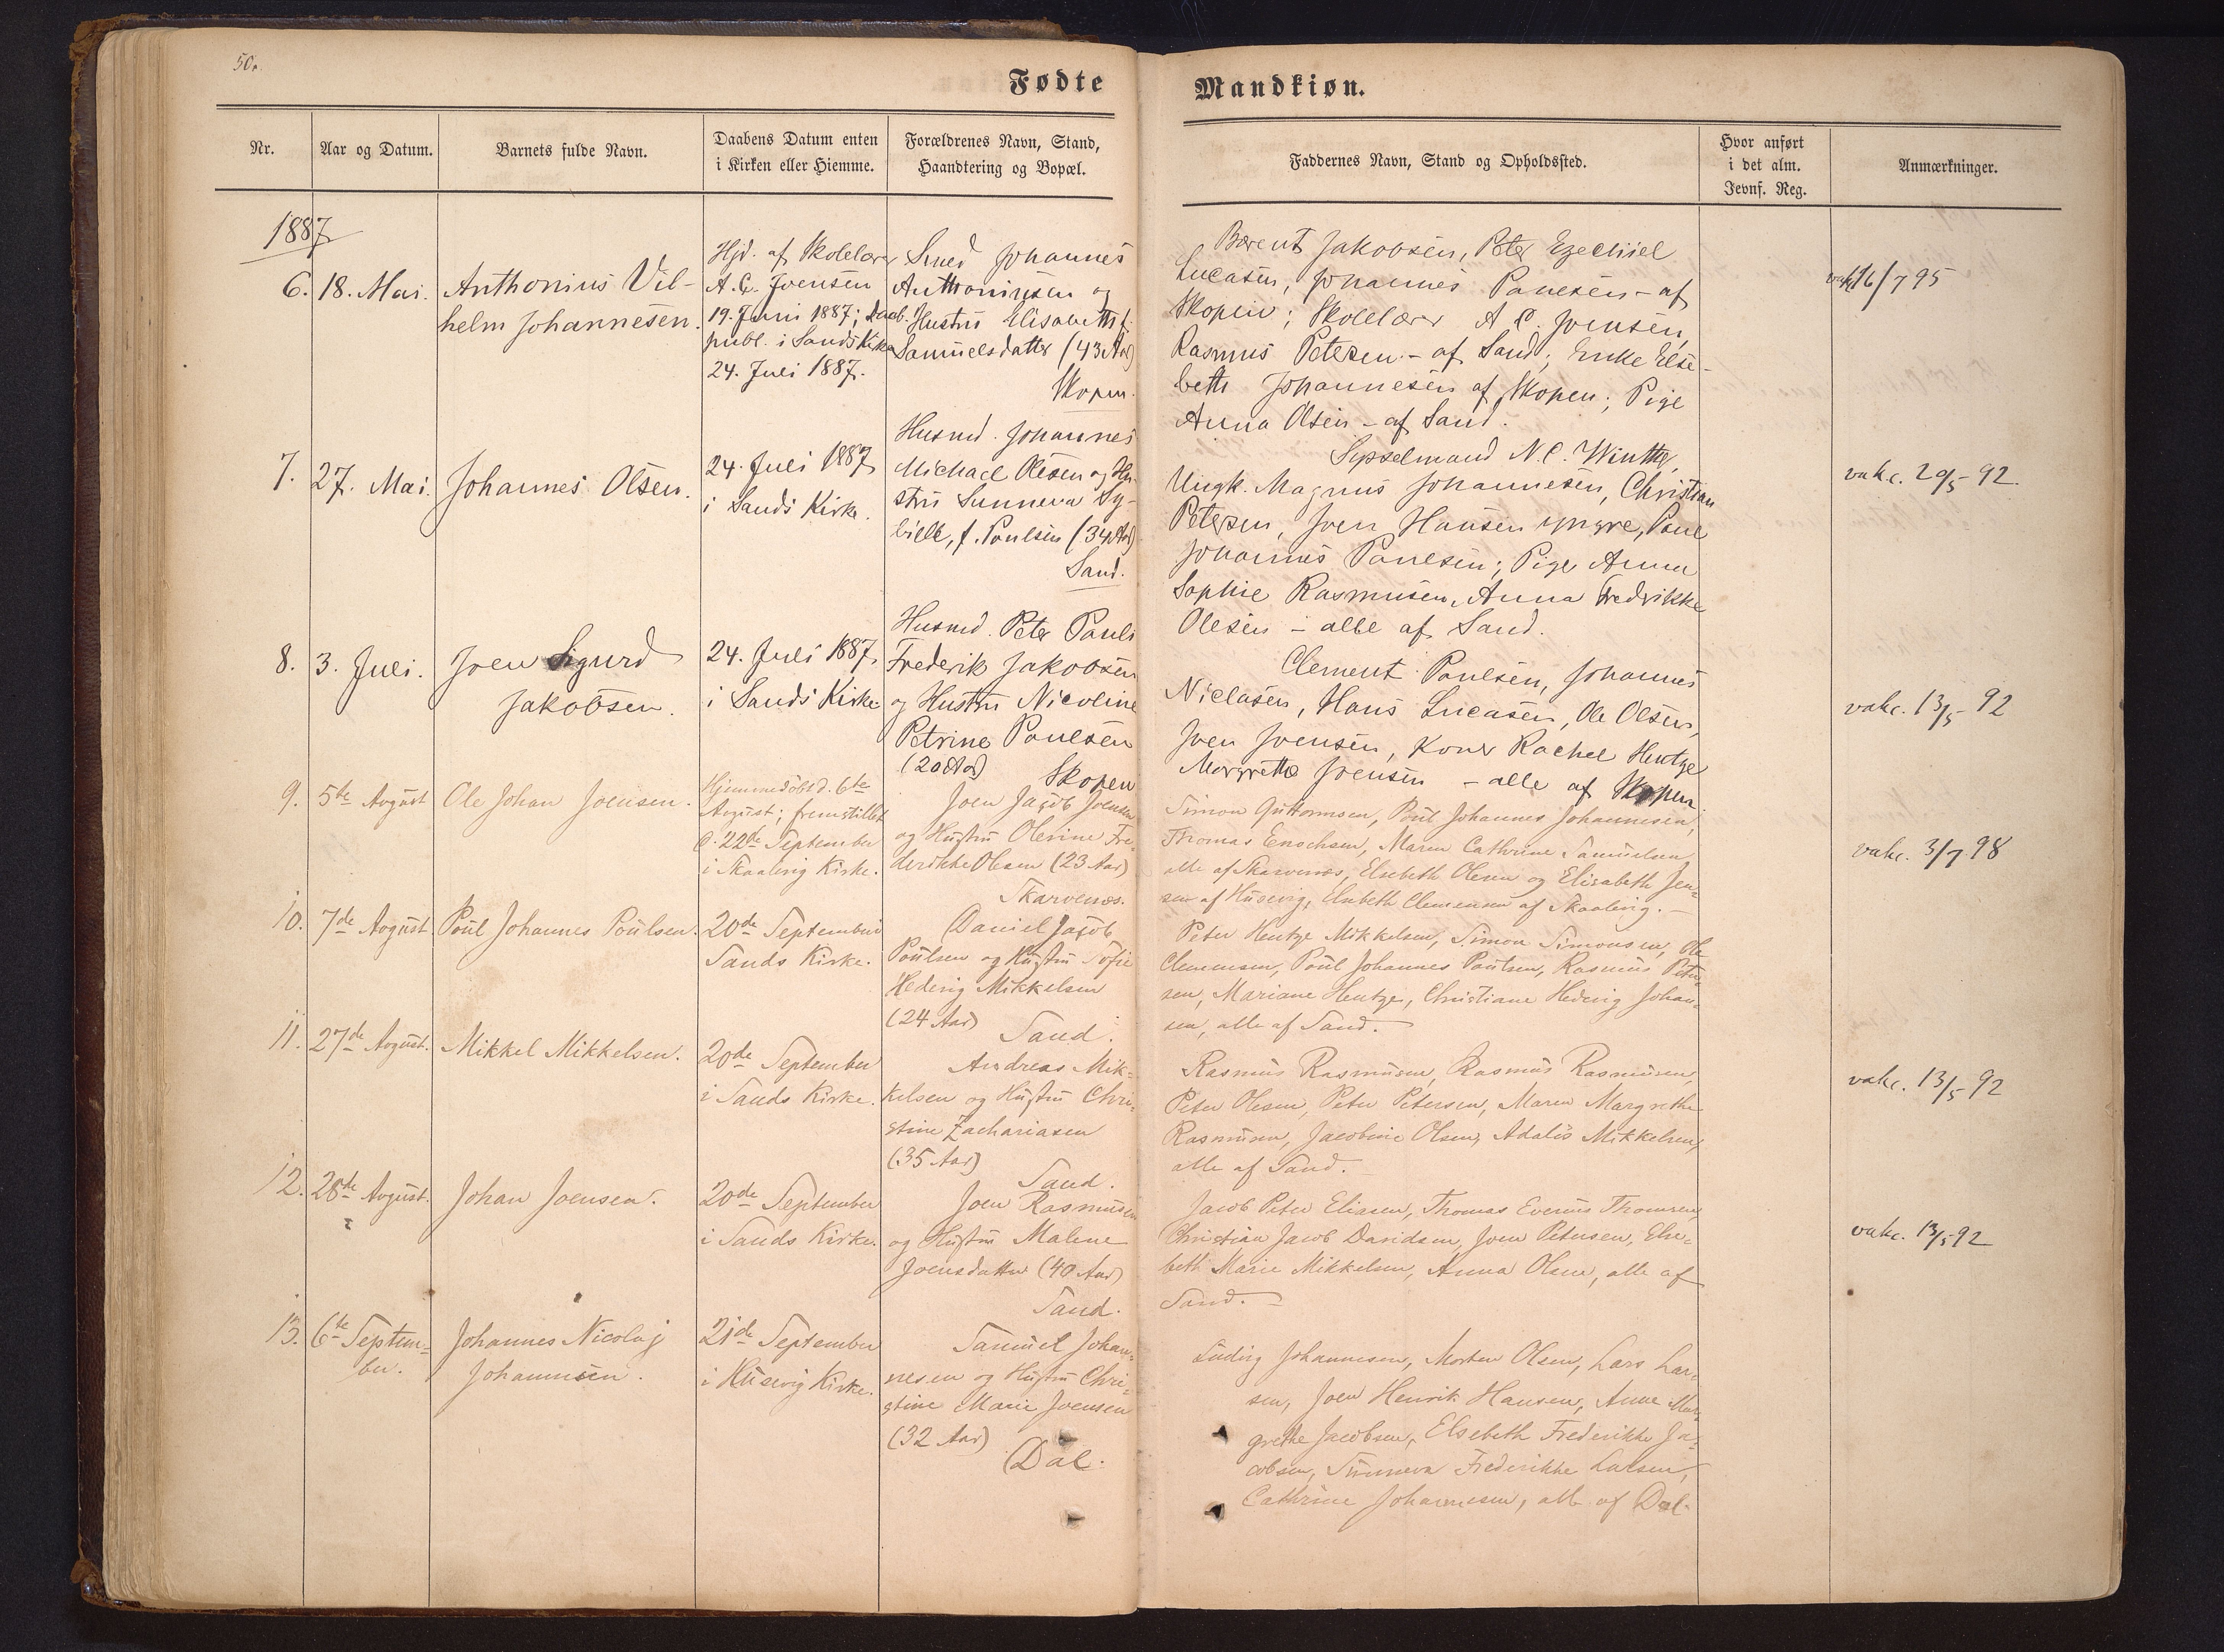 50.
Fødte
Mandkiøn.
Nr.
Aar og Datum.
Barnets fulde Navn.
Daabens Datum enten
i Kirken eller Hiemme.
Forældrenes Navn, Stand,
Haandtering og Bopæl.
Faddernes Navn, Stand og Opholdssted.
Hvor anført
i det alm.
Jevnf. Reg.
Anmærkninger.
1887
6.
18. Mai.
Anthonius Vil-
helm Johannesen.
Hjd. af Skolelærer
A. C. Joensen
19. Juni 1887; Daab.
publ. i Sands Kirke
24. Juli 1887.
Smed Johannes
Anthoniusen og
Hustru Elisabeth f.
Samuelsdatter (43 Aar)
Skopen.
Berent Jakobsen, Peter Ezechiel
Lucasen, Johannes Poulsen - af
Skopen; Skolelærer A C. Joensen,
Rasmus Petersen - af Sand; Enke Else-
beth Johannesen af Skopen; Pige
Anna Olsen - af Sand.
vakc. 16/7 95
7.
27. Mai.
Johannes Olsen.
24. Juli 1887
i Sands Kirke.
Husmd. Johannes
Michael Olesen og Hu-
stru Sunneva Sy-
bille, f. Poulsen (34 Aar)
Sand.
Sysselmand N. C. Winther,
Ungk. Magnus Johannesen, Christian
Petersen, Joen Hansen yngre, Poul
Johannes Poulsen; Pige Anna
Sophie Rasmusen, Anna Fredrikke
Olesen - alle af Sand.
vakc. 29/5 92.
8.
3. Juli.
Joen Sigurd
Jakobsen.
24. Juli 1887.
i Sands Kirke.
Husmd. Peter Pauli
Frederik Jakobsen
og Hustru Nicoline
Petrine Poulsen
(20 Aar)
Skopen
Clement Poulsen, Johannes
Niclasen, Hans Lucasen, Ole Olsen,
Joen Joensen, Koner Rachel Hentze
Margrethe Joensen - alle af Skopen.
vakc. 13/5 92
9.
5te August
Ole Johan Joensen.
Hjemmedöbt d. 6te
August; fremstillet
d. 22de September
i Skaalevig Kirke.
Joen Jacob Joensen
og Hustru Olevine Fre-
derikke Olesen (23 Aar)
Skarvenæs.
Simon Guttormsen, Poul Johannes Johannesen,
Thomas Enochsen, Maren Cathrine Samuelsen
alle af Skarvenæs, Elsebeth Olesen og Elisabeth Jen-
sen af Husevig, Elsebeth Clemensen af Skaalevig.
vakc. 3/7 98
10.
7de August
Poul Johannes Poulsen.
20de September i
Sands Kirke.
Daniel Jacob
Poulsen og Hustru Sofie
Hedevig Mikkelsen
(24 Aar)
Sand.
Peter Hentze Mikkelsen, Simon Simonsen, Ole
Clemensen, Poul Johannes Poulsen, Rasmus Peter-
sen, Mariane Hentze, Christiane Hedevig Johan-
sen, alle af Sand.
11.
27de August.
Mikkel Mikkelsen.
20de September
i Sands Kirke.
Andreas Mik-
kelsen og Hustru Chri-
stine Zachariasen
(35 Aar)
Sand.
Rasmus Rasmusen, Rasmus Rasmusen,
Peter Olesen, Peter Petersen, Maren Margrethe
Rasmusen, Jacobine Olsen, Adalis Mikkelsen,
alle af Sand.
vakc. 13/5 92
12.
28de August.
Johan Joensen.
20de September
i Sands Kirke.
Joen Rasmusen
og Hustru Malene
Joensdatter (40 Aar)
Sand.
Jacob Peter Eliasen, Thomas Evenus Thomsen,
Christian Jacob Davidsen, Joen Petersen, Else-
beth Marie Mikkelsen, Anna Olsen, alle af
Sand.
vakc. 13/5 92
13.
6te Septem-
ber.
Johannes Nicolaj
Johannesen.
21de September
i Husevig Kirke.
Samuel Johan-
nesen og Hustru Chri-
stine Marie Joensen
(32 Aar)
Dal.
Ludvig Johannesen, Morten Olsen, Lars Lar-
sen, Joen Henrik Hansen, Anne Mar-
grethe Jacobsen, Elsebeth Frederikke Ja-
cobsen, Sunneva Frederikke Larsen,
Cathrine Johannesen, alle af Dal.